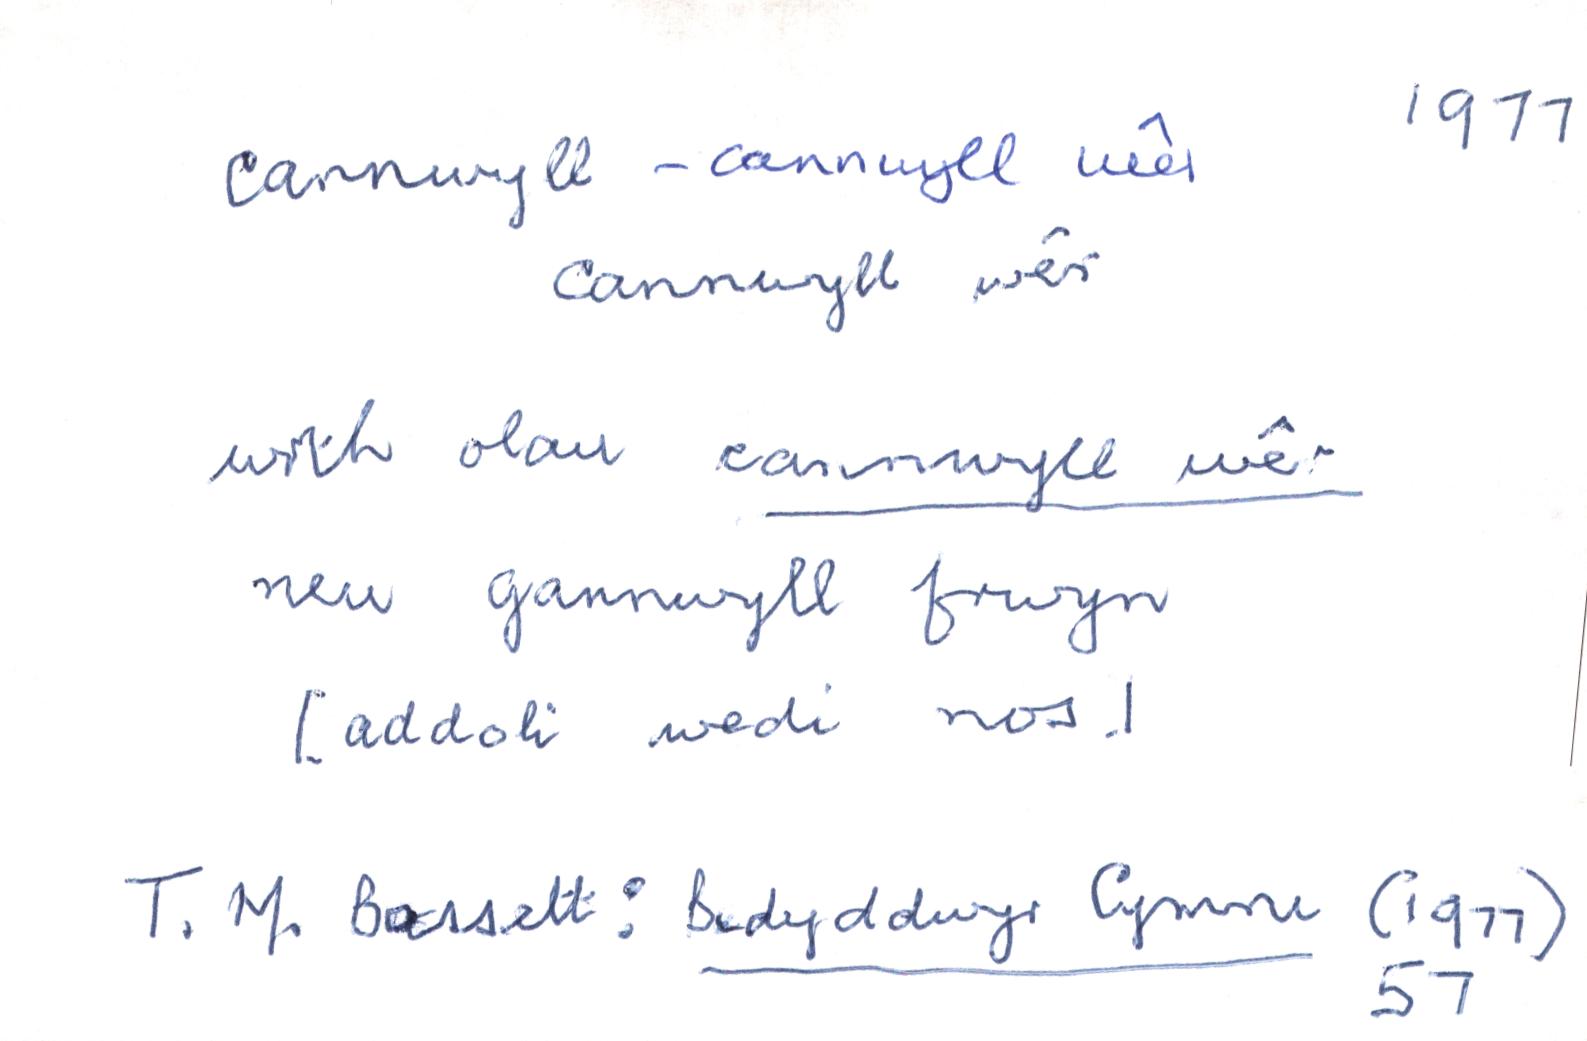 1977
cannwyll - cannwyll wêr
cannwyll wêr
wrth olau cannwyll wêr
neu gannwyll frwyn
[addoli wedi nos.]
T. M. Bassett: Bedyddwyr Cymru (1977)
57